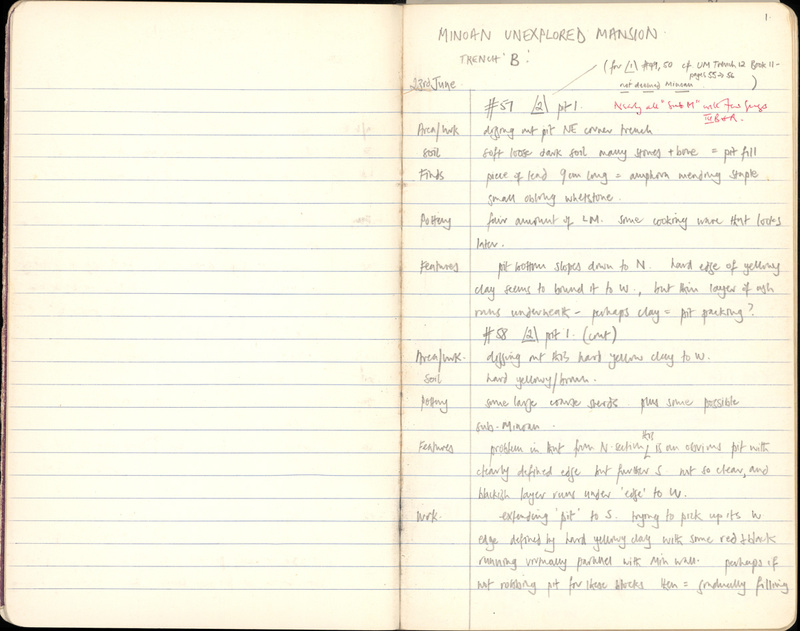 1.
MINOAN UNEXPLORED MANSION.
TRENCH 'B'.
(for /1\ #49, 50 cf UM Trench 12 Book 11 -
pages 55 → 56
not deemed Minoan )
23rd June
#57 /2\ pit 1.
Nearly all "Sub M" with few frags
III B + A.
Area/wrk digging out pit NE corner trench
Soil soft loose dark soil many stones + bone = pit fill
Finds piece of lead 9cm long = amphora mending staple.
small oblong whetstone.
Pottery fair amount of LM. some cooking ware that looks
later.
Features pit bottom slopes down to N. hard edge of yellowy
clay seems to bound it to W., but thin layer of ash
runs underneath - perhaps clay = pit packing?
#58 /2\ pit 1. (cont)
Area/wrk. digging out this hard yellow clay to W.
Soil hard yellowy/brown.
Pottery some large coarse sherds plus some possible
sub-Minoan.
Features problem in that from N. section this is an obvious pit with
clearly defined edge but further S. not so clear, and
blackish layer runs under 'edge' to W.
Work. extending 'pit' to S. trying to pick up its W
edge defined by hard yellowy clay with some red + black
running vaguely parallel with Min wall. perhaps if
not robbing pit for these blocks then = gradually filling